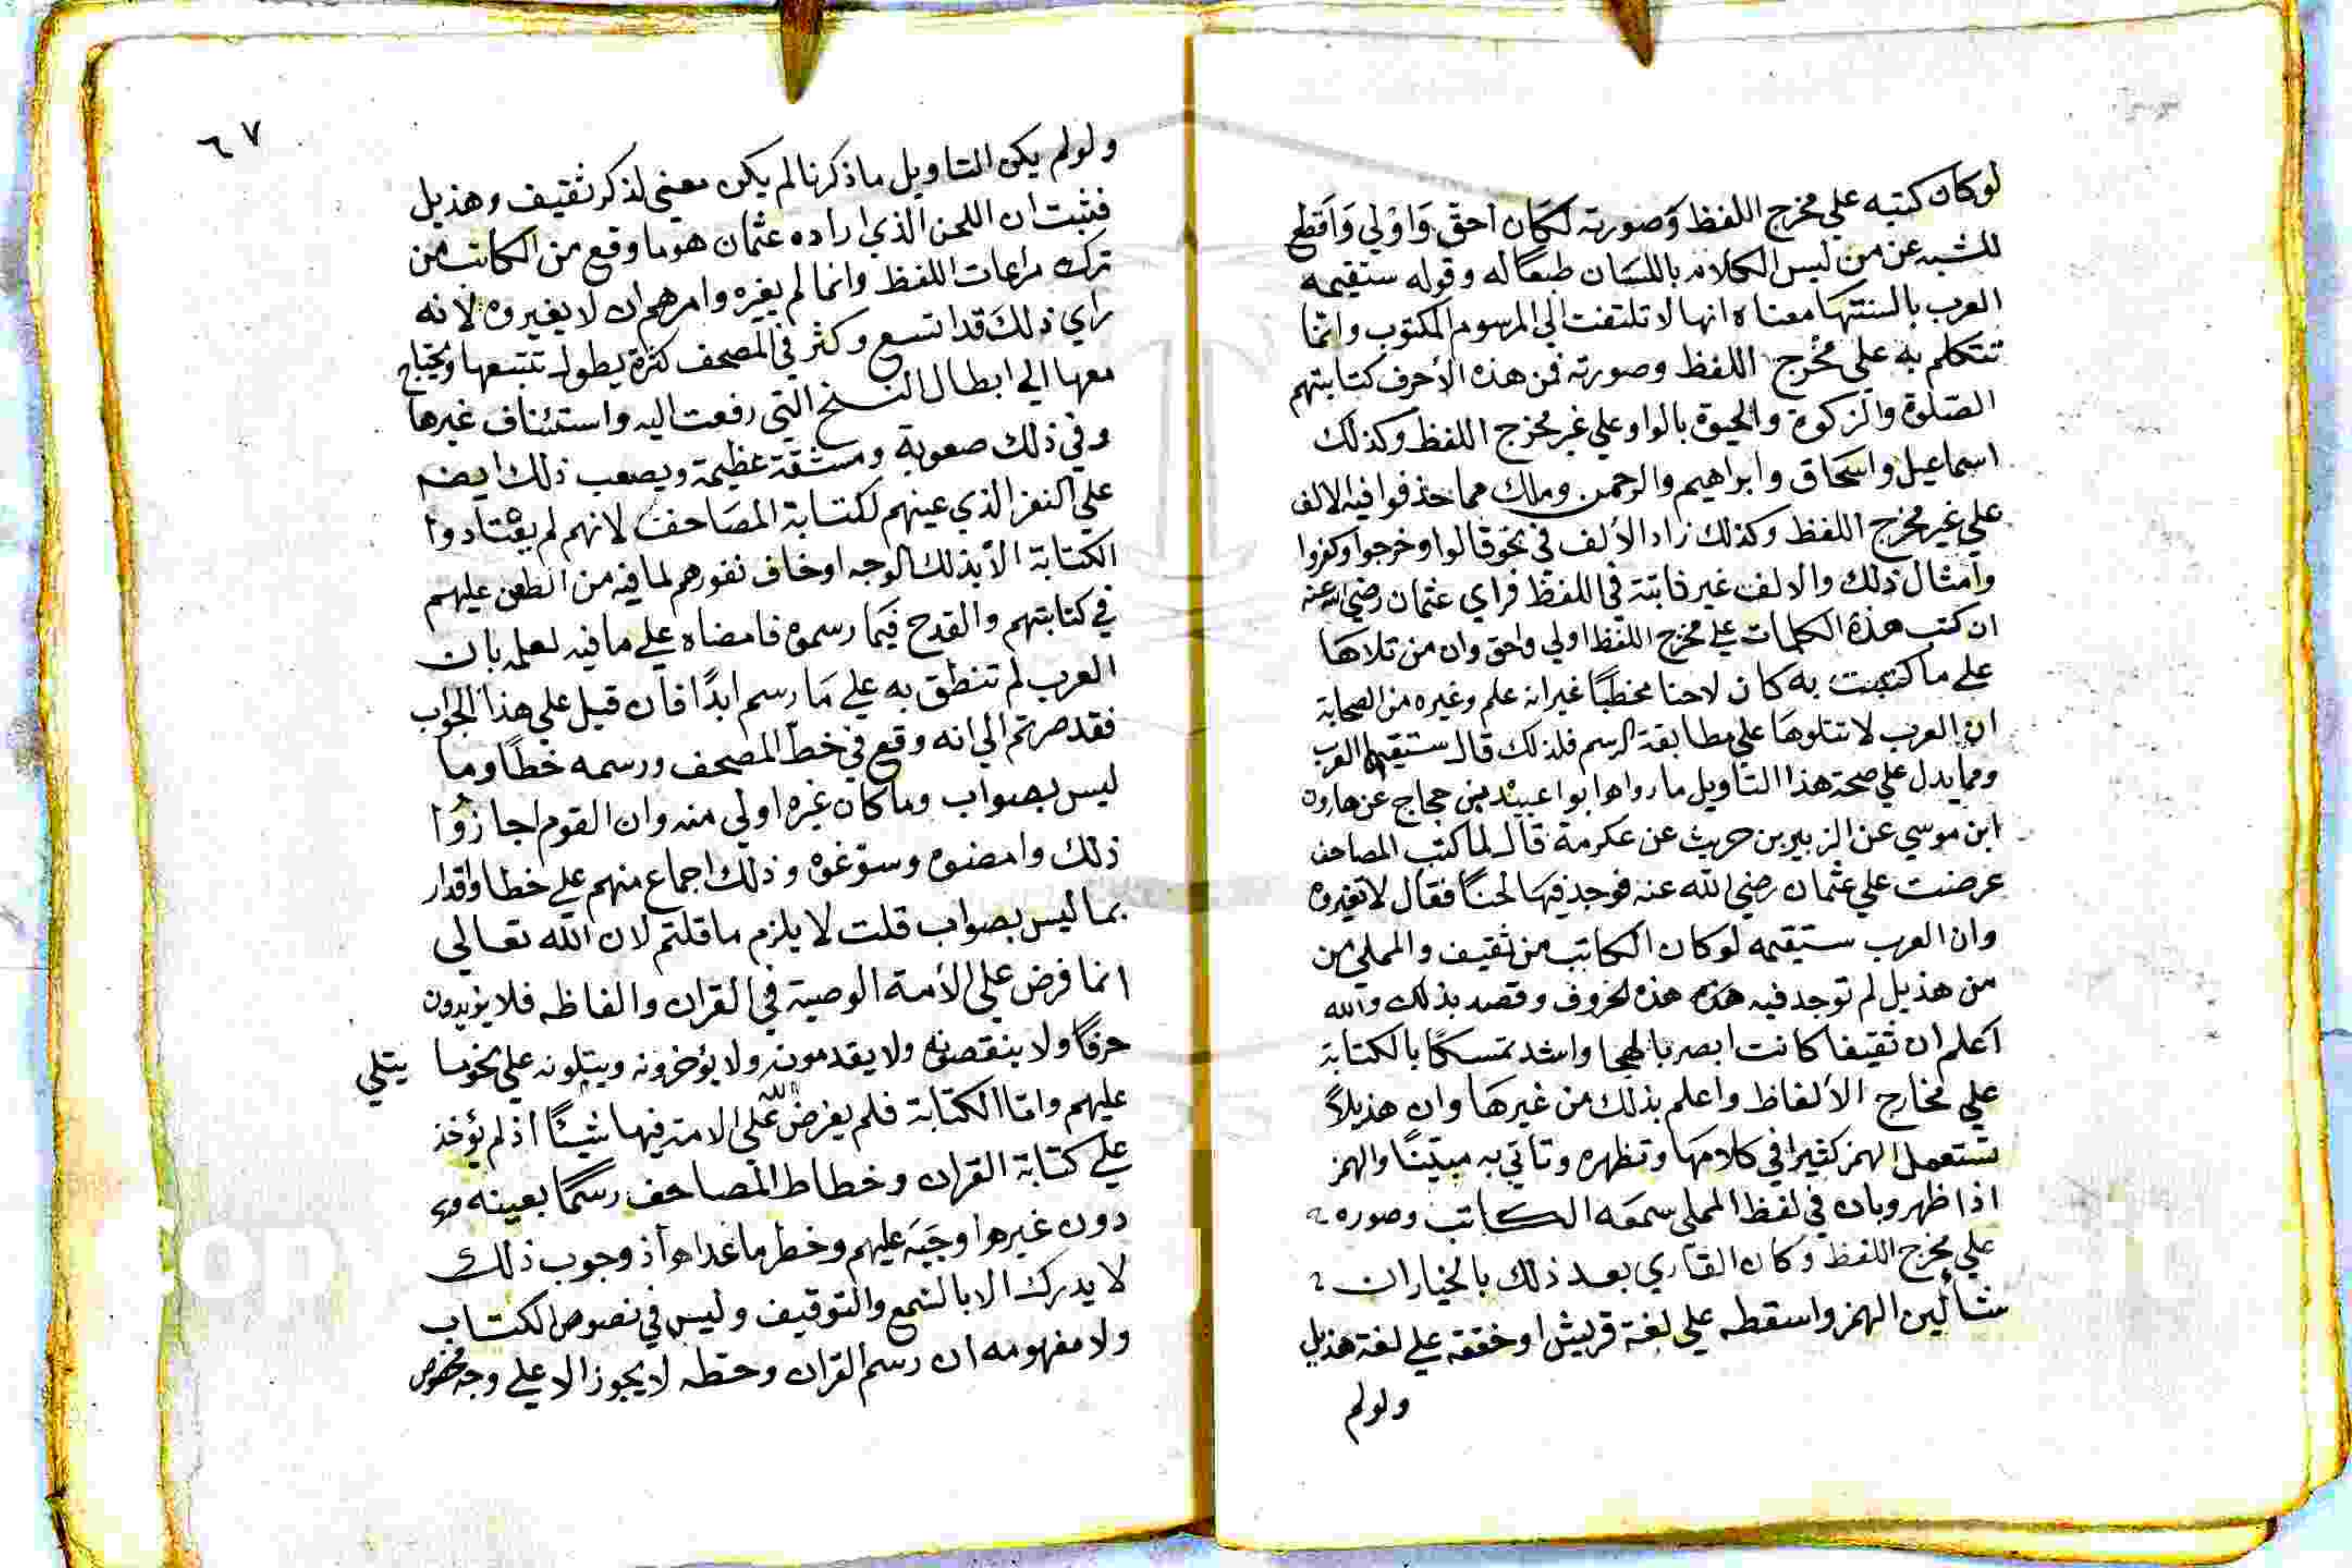 لو كان كتبه علي مخرج اللفظ وَصورته لكان احقّ وَاوْلي وَاَقطع
للشبه عن من ليس الكلام باللسَان طبعًا له وقوله ستقيمه
العرب بالسنتهَا معناه انها لا تلتفت الي المرسوم المكتوب وانما
تتكلم به علي مخْرج اللفظ وصورته فمن هذه الأحرف كتابتهم
الصّلوة والزكوة والحيوة بالواو علي غير مخرج اللفظ وكذلك
اسماعيل واسَحاق وابراهيم والرحمن وملك مما حذفوا فيه الالف
علي غير مخرج اللفظ وكذلك زاد الألف في نحو قالوا وخرجوا وكفروا
وامثال ذلك والالف غير ثابتة في اللفظ فراي عثمان رضي الله عنه
ان كتب هذة الكلمات علي مخرج اللفظ اولي واحق وان من تلاهَا
علي ما كتبت به كان لاحنا مخطيًا غير انه علم وغيره من الصحابة
ان العرب لا تتلوهَا علي مطابقة الرسم فلذلك قال ستقيمها العرب
ومما يدل علي صحة هذا التاويل ما رواه ابوا عبيد بن حجاج عن هارون
ابن موسي عن الزبير بن حريث عن عكرمة قال لما كتب المصاحف
عرضت علي عثمان رضي الله عنه فوجد فيهَا لحنًا فقال لا تغيروه
وان العرب ستقيمه لو كان الكاتب من ثقيف والمملي من
من هذيل لم توجد فيه هذه هذه الحروف وقصد بذلك والله
اعلم ان ثقيفا كانت ابصر بالهجا واشد تمسكًا بالكتابة
علي مخارج الألفاظ واعلم بذلك من غيرهَا وان هذيلاً
تستعمل الهمز كثيرا في كلامهَا وتظهره وتاتي به مبيّنًا والهمز
اذا ظهر وبان في لفظ المملي سمعَه الكاتب وصوره
علي مخرج اللفظ وكان القاري بعد ذلك بالخيار ان
شا لين الهمز واسقطه علي لغة قريش او حققه علي لغة هذيل
ولو لم
٦٧
ولو لم يكن التاويل ما ذكرنا لم يكن معني لذكر ثقيف وهذيل
فثبت ان اللحن الذي اراده عثمان هو ما وقع من الكاتب من
ترك مراعات اللفظ وانما لم يغيره وامرهم ان لا يغيروه لانه
راي ذلك قد اتسع وكثر في المصحف كثرة يطول تتبعها ويحتاج
معها الي ابطال النسخ التي رفعت اليه واستئناف غيرها
وفي ذلك صعوبة ومشقة عظيمة ويصعب ذلك ايضم
علي النفر الذي عينهم لكتابة المصَاحف لانهم لم يعتادوا
الكتابة الا بذلك الوجه او خاف نفورهم لما فيه من الطعن عليهم
في كتابتهم والقدح فيَما رسموه فامضاه علي ما فيه لعلمه بان
العرب لم تنطق به علي مَا رسم ابدًا فان قيل علي هذا الجواب
فقد صرتم الي انه وقع في خطّ المصحف ورسمه خطًا وما
ليس بصواب وما كان غيره اولي منه وان القوم اجازوا
ذلك وامضوه وسوّغوه وذلك اجماع منهم علي خطا واقدار
بما ليس بصواب قلت لا يلزم ما قلتم لان الله تعالي
انما فرض علي الأمة الوصية في القران والفاظه فلا يزيدون
حرفًا ولا ينقصونه ولا يقدمونه ولا يؤخرونه ويتلونه علي نحو ما يتلي
عليهم وامّا الكتابة فلم يفرض الله علي الامة فيها شيئًا اذ لم يؤخذ
علي كتابة القران وخطاط المصاحف رسمًا بعينه
دون غيره اوجبَه عليهم وخطر ما عداه اذ وجوب ذلك
لا يدرك الا بالسّمع والتوقيف وليس في نصوص الكتاب
ولا مفهومه ان رسم القران وحطّه لا يجوز الا علي وجه مخصوص